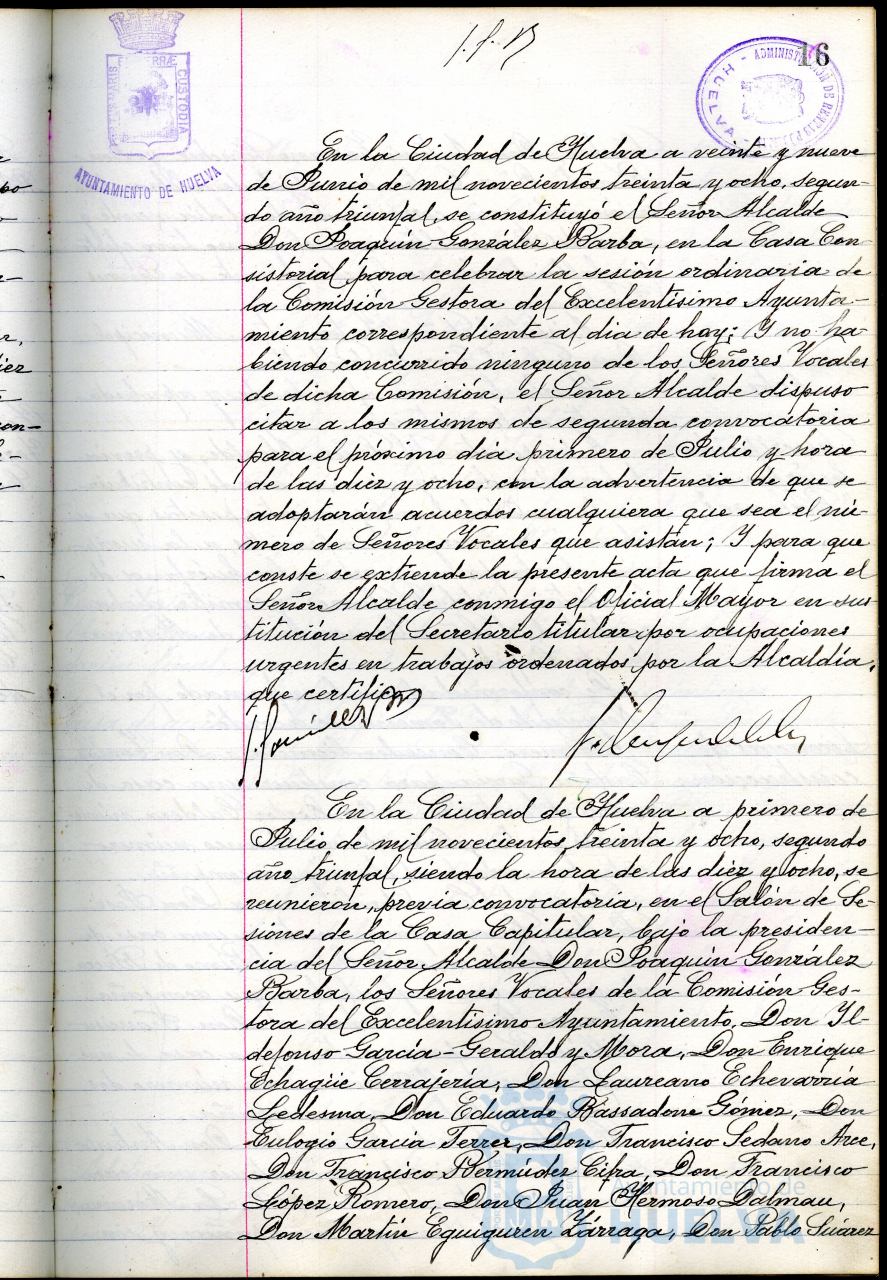 16
PORTUS MARIS ET TERRÆ CUSTODIA
AYUNTAMIENTO DE HUELVA
ADMINISTRACIÓN DE RENTAS
HUELVA
En la Ciudad de Huelva a veinte y nueve
de Junio de mil novecientos treinta y ocho, segun-
do año triunfal, se constituyó el Señor Alcalde
Don Joaquín González Barba, en la Casa Con-
sistorial para celebrar la sesión ordinaria de
la Comisión Gestora del Excelentísimo Ayunta-
miento correspondiente al dia de hoy; Y no ha-
biendo concurrido ninguno de los Señores Vocales
de dicha Comisión, el Señor Alcalde dispuso
citar a los mismos de segunda convocatoria
para el próximo dia primero de Julio y hora
de las diez y ocho, con la advertencia de que se
adoptarán acuerdos cualquiera que sea el nú-
mero de Señores Vocales que asistán; Y para que
conste se extiende la presente acta que firma el
Señor Alcalde conmigo el Oficial Mayor en sus
titución del Secretario titular por ocupaciones
urgentes en trabajos ordenados por la Alcaldía,
que certifico
En la Ciudad de Huelva a primero de
Julio de mil novecientos treinta y ocho, segundo
año triunfal, siendo la hora de las diez y ocho, se
reunieron, previa convocatoria, en el Salón de Se-
siones de la Casa Capitular, bajo la presiden-
cia del Señor Alcalde Don Joaquín González
Barba, los Señores Vocales de la Comisión Ges-
tora del Excelentísimo Ayuntamiento, Don Il-
defonso García-Geraldo y Mora, Don Enrique
Echagüe Cerrajería, Don Laureano Echevarría
Ledesma, Don Eduardo Bassadone Gómez, Don
Eulogio García Terrer, Don Francisco Sedano Arce,
Don Francisco Bermúdez Cifra, Don Francisco
López Romero, Don Juan Hermoso Dalmau,
Don Martín Eguiguren Zárraga, Don Pablo Suárez
Ayuntamiento de
HUELVA